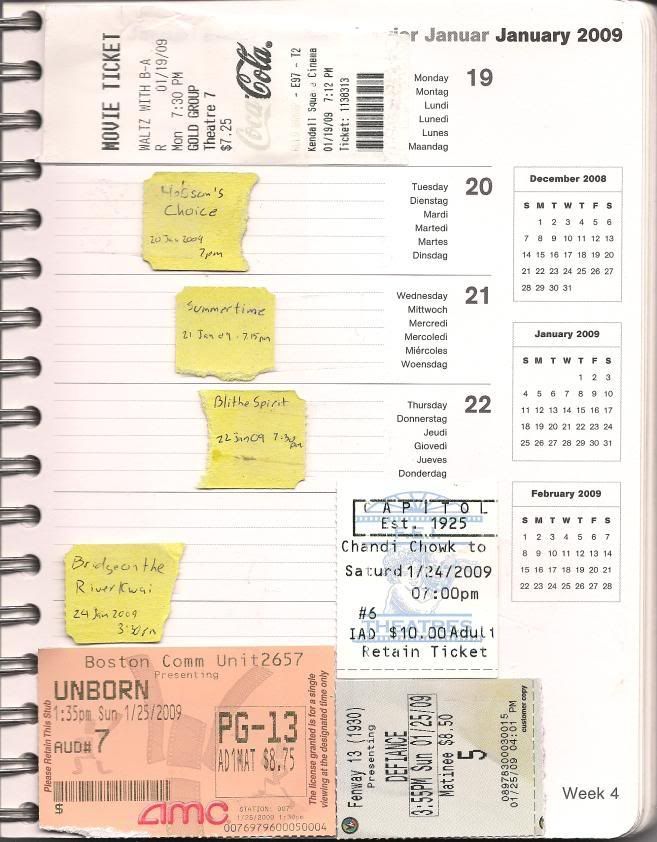 January 2009
MOVIE TICKET
WALTZ WITH B-A
R 01/19/09
Mon 7:30 PM
GOLD GROUP
Theatre 7
$7.25
Coca-Cola
- E97 - T2
Kendall Squa e Cinema
01/19/09 7:12 PM
Ticket: 1138313
Monday 19
Montag
Lundi
Lunedì
Lunes
Maandag
Hobson's
Choice
20 Jan 2009
7pm
Tuesday 20
Dienstag
Mardi
Martedì
Martes
Dinsdag
Summertime
21 Jan 09 - 7.15pm
Wednesday 21
Mittwoch
Mercredi
Mercoledì
Miércoles
Woensdag
Blithe Spirit
22 Jan 09 7:30 pm
Thursday 22
Donnerstag
Jeudi
Giovedì
Jueves
Donderdag
December 2008
S M T W T F S
1 2 3 4 5 6
7 8 9 10 11 12 13
14 15 16 17 18 19 20
21 22 23 24 25 26 27
28 29 30 31
January 2009
S M T W T F S
1 2 3
4 5 6 7 8 9 10
11 12 13 14 15 16 17
18 19 20 21 22 23 24
25 26 27 28 29 30 31
February 2009
S M T W T F S
1 2 3 4 5 6 7
8 9 10 11 12 13 14
15 16 17 18 19 20 21
22 23 24 25 26 27 28
Bridge on the
River Kwai
24 Jan 2009
3:30pm
CAPITOL
Est. 1925
Chandi Chowk to
Saturd 1/24/2009
07:00pm
#6
THEATRES
IAD $10.00 Adult
Retain Ticket
Boston Comm Unit2657
Presenting
UNBORN
1:35pm Sun 1/25/2009
AUD# 7
PG-13
AD1MAT $8.75
Please Retain This Stub
The license granted is for a single
viewing at the designated time only
$
amc
STATION: 007
1/25/2009 1:30pm
0076979600050004
Fenway 13 (1930)
Presenting
DEFIANCE
3:55PM Sun 01/25/09
Matinee $8.50
5
08978300030015
01/25/09 04:01 PM
customer copy
Week 4